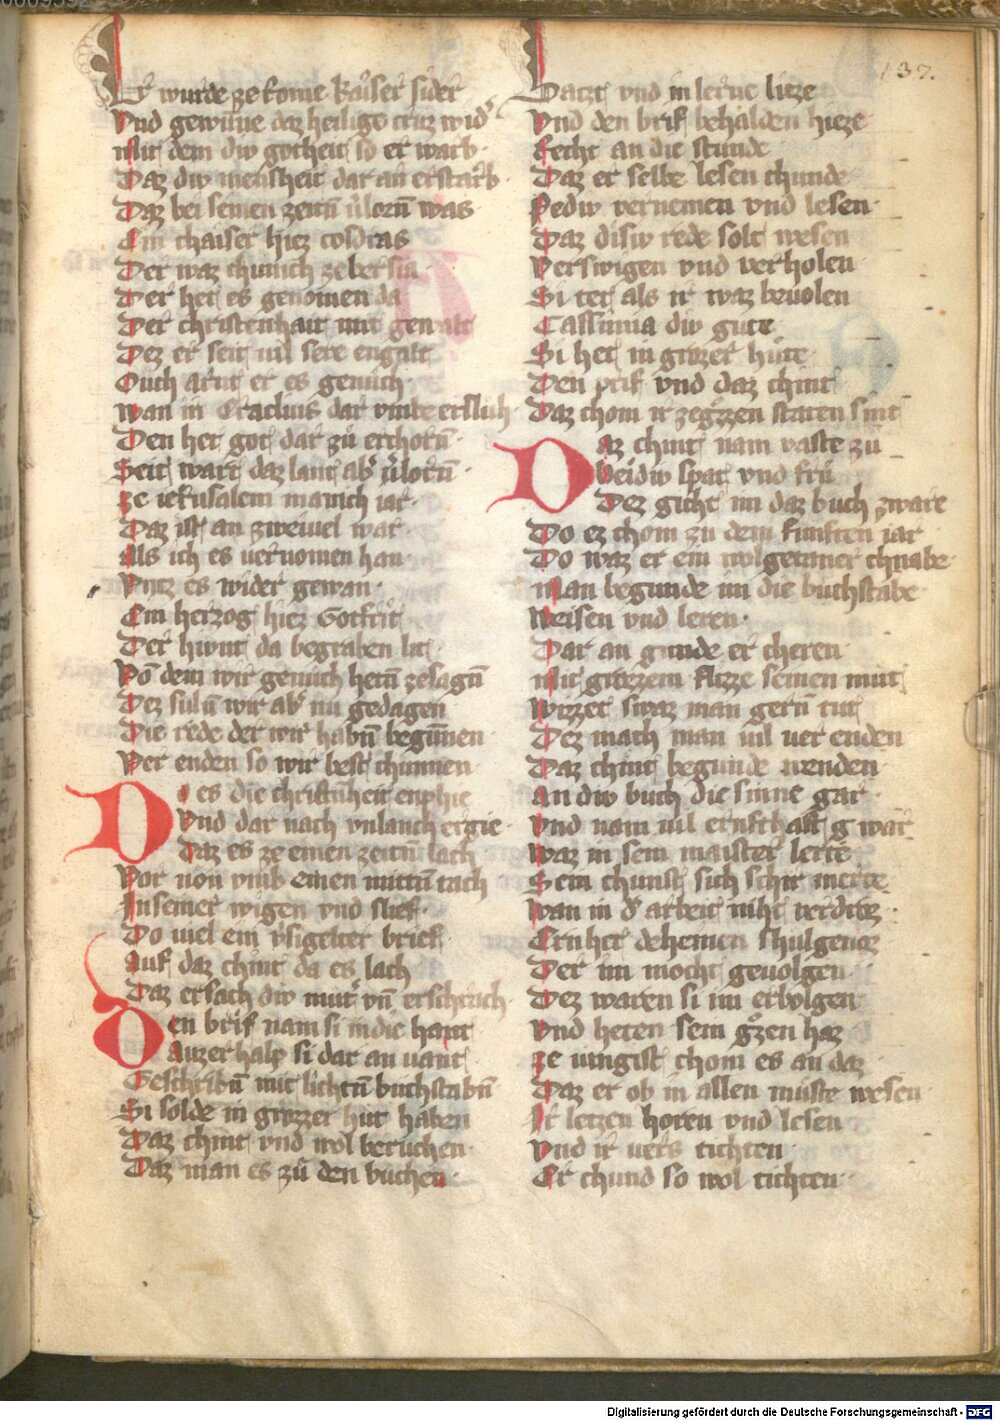 137.
Er wurde ze Rome kaiser sider
Vnd gewunne daz heilige cruz wid͛
Mit dem diw gotheit so er warb
Daz diw mensheit dar an erstarb
Daz bei seinen zeitn̄ v͛lorn̄ was
Ein chaiser hiez cosdras
Der waz chunich ze persia
Der het es genomen da
Der christenhait mit gewalt
Dez er seit uil sere engalt
Ouch arnt er es genuch
Wan in Eraclius dar vmbe ersluch
Den het got dar zu erchorn̄
Seit wart daz lant ab͛ v͛lorn̄
Ze ierusalem manich iar
Daz ist an zweiuel war
Als ich es uernomen han
Vntz es wider gewan
Ein herzog hiez Gotfrit
Der hiwnt da begraben lit
Vō dem wir genuch hetn̄ zesagn̄
Dez suln̄ wir ab͛ nu gedagen
Die rede der wir habn̄ begunnen
Ver enden so wir best chunnen
Do es die christn̄heit enphie
Vnd dar nach vnlanch ergie
Daz es ze einen zeitn̄ lach
Vor non vmb einen mittn̄ tach
In seiner wigen vnd slief
Do viel ein v͛sigelter brief
Auf daz chint da es lach
Daz ersach diw mut͛ vn̄ erschrach
Den brif nam si in die hant
Auzerhalp si dar an vant
Geschribn̄ mit lichtn̄ buchstabn̄
Si solde in grozzer hut haben
Daz chint vnd wol beruchen
Daz man es zu den buchen
Satzt vnd in lerne lieze
Vnd den brif behalden hieze
Recht an die stunde
Daz er selbe lesen chunde
Pediw vernemen vnd lesen
Daz disiw rede solt wesen
Verswigen vnd verholen
Si tet als ir waz beuolen
Cassinia diw gute
Si het in grozer hute
Den prif vnd daz chint
Daz chom ir ze grozzen staten sint
Daz chint nam vaste zu
Beidiw spat vnd fru
Dez gicht im daz buch zware
Do ez chom zu dem funften iar
Do waz er ein wolgetaner chnabe
Man begunde im die buchstabe
Weisen vnd leren
Dar an gunde er cheren
Mit grozzem flizze seinen mut
Wizzet swaz man gern̄ tut
Dez mach man uil uer enden
Daz chint begunde wenden
An diw buch die sinne gar
Vnd nam uil ernsthaft g war
Waz in sein maister lerte
Sein chunst sich schir merte
Wan in d͛ arbeit niht verdroz
Ern het deheinen shulgenoz
Der im mocht geuolgen
Dez waren si im erbolgen
Vnd heten sein grozen haz
Ze iungist chom es an daz
Daz er ob in allen muste wesen
Ir letzen horen vnd lesen
Vnd ir uers tichten
Er chund so wol tichten
Digitalisierung gefördert durch die Deutsche Forschungsgemeinschaft - DFG